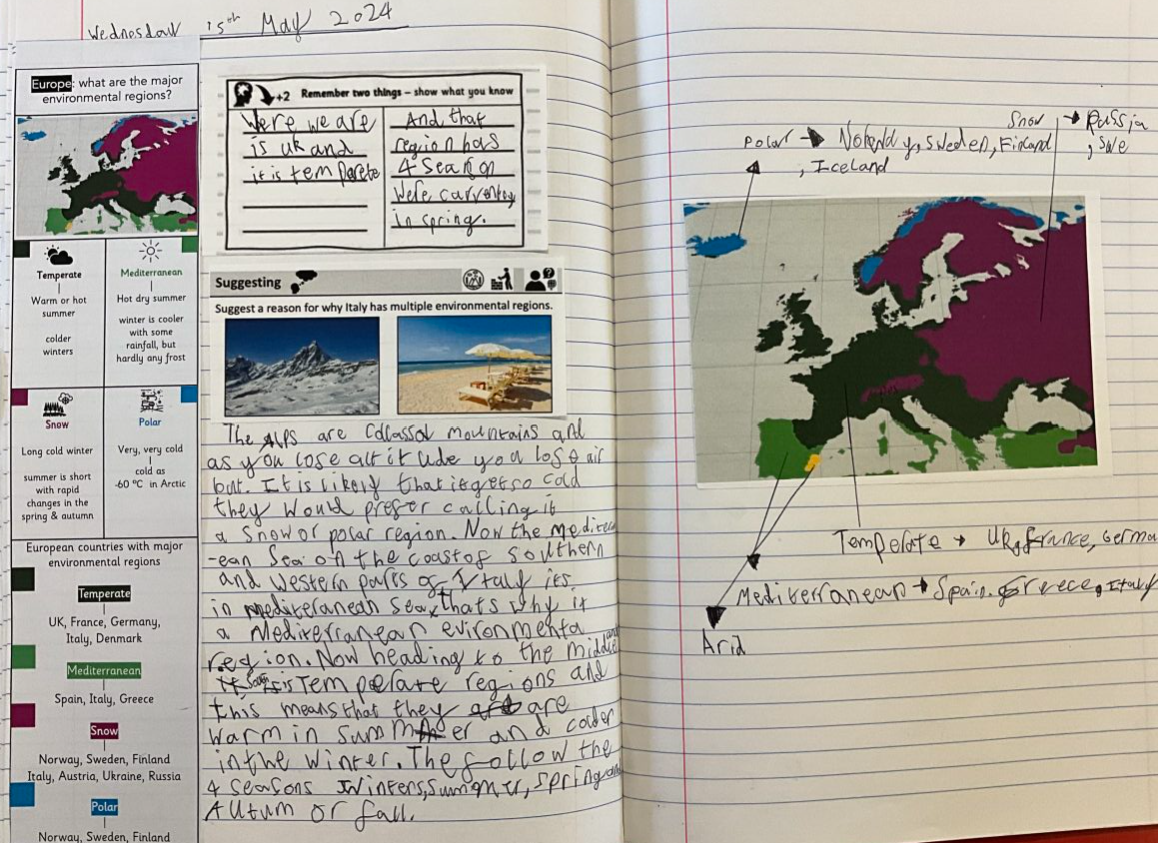 Wednesday 15th May 2024
Europe: what are the major
environmental regions?
Temperate
Warm or hot
summer
colder
winters
Mediterranean
Hot dry summer
winter is cooler
with some
rainfall, but
hardly any frost
Snow
Long cold winter
summer is short
with rapid
changes in the
spring & autumn
Polar
Very, very cold
cold as
-60 °C in Arctic
European countries with major
environmental regions
Temperate
UK, France, Germany,
Italy, Denmark
Mediterranean
Spain, Italy, Greece
Snow
Norway, Sweden, Finland
Italy, Austria, Ukraine, Russia
Polar
Norway, Sweden, Finland
+2 Remember two things – show what you know
Were we are
is uk and
it is temperete
And that
region has
4 Season
We're currentey
in spring.
Suggesting
Suggest a reason for why Italy has multiple environmental regions.
The Alps are Collassal mountains and
as you lose altitude you lose air
but. It is likely that it gets so cold
they would prefer calling it
a Snow or polar region. Now the mediterr
-ean Sea off the coast of southern
and western parts of Italy its
in mediteranean sea, thats why it
a Mediterranean evironmenta
region. Now heading to the middle and
is Temperate regions and
this means that they are
warm in summer and coder
in the winter. The follow the
4 seasons Winters, Summer, Spring and
Autum or fall.
Snow → Russia
, Swe
Polar → , Sweden, Finland
, Iceland
Temperate → UK, france, Germa
Mediterranean → Spain. Greece, Italy
Arid